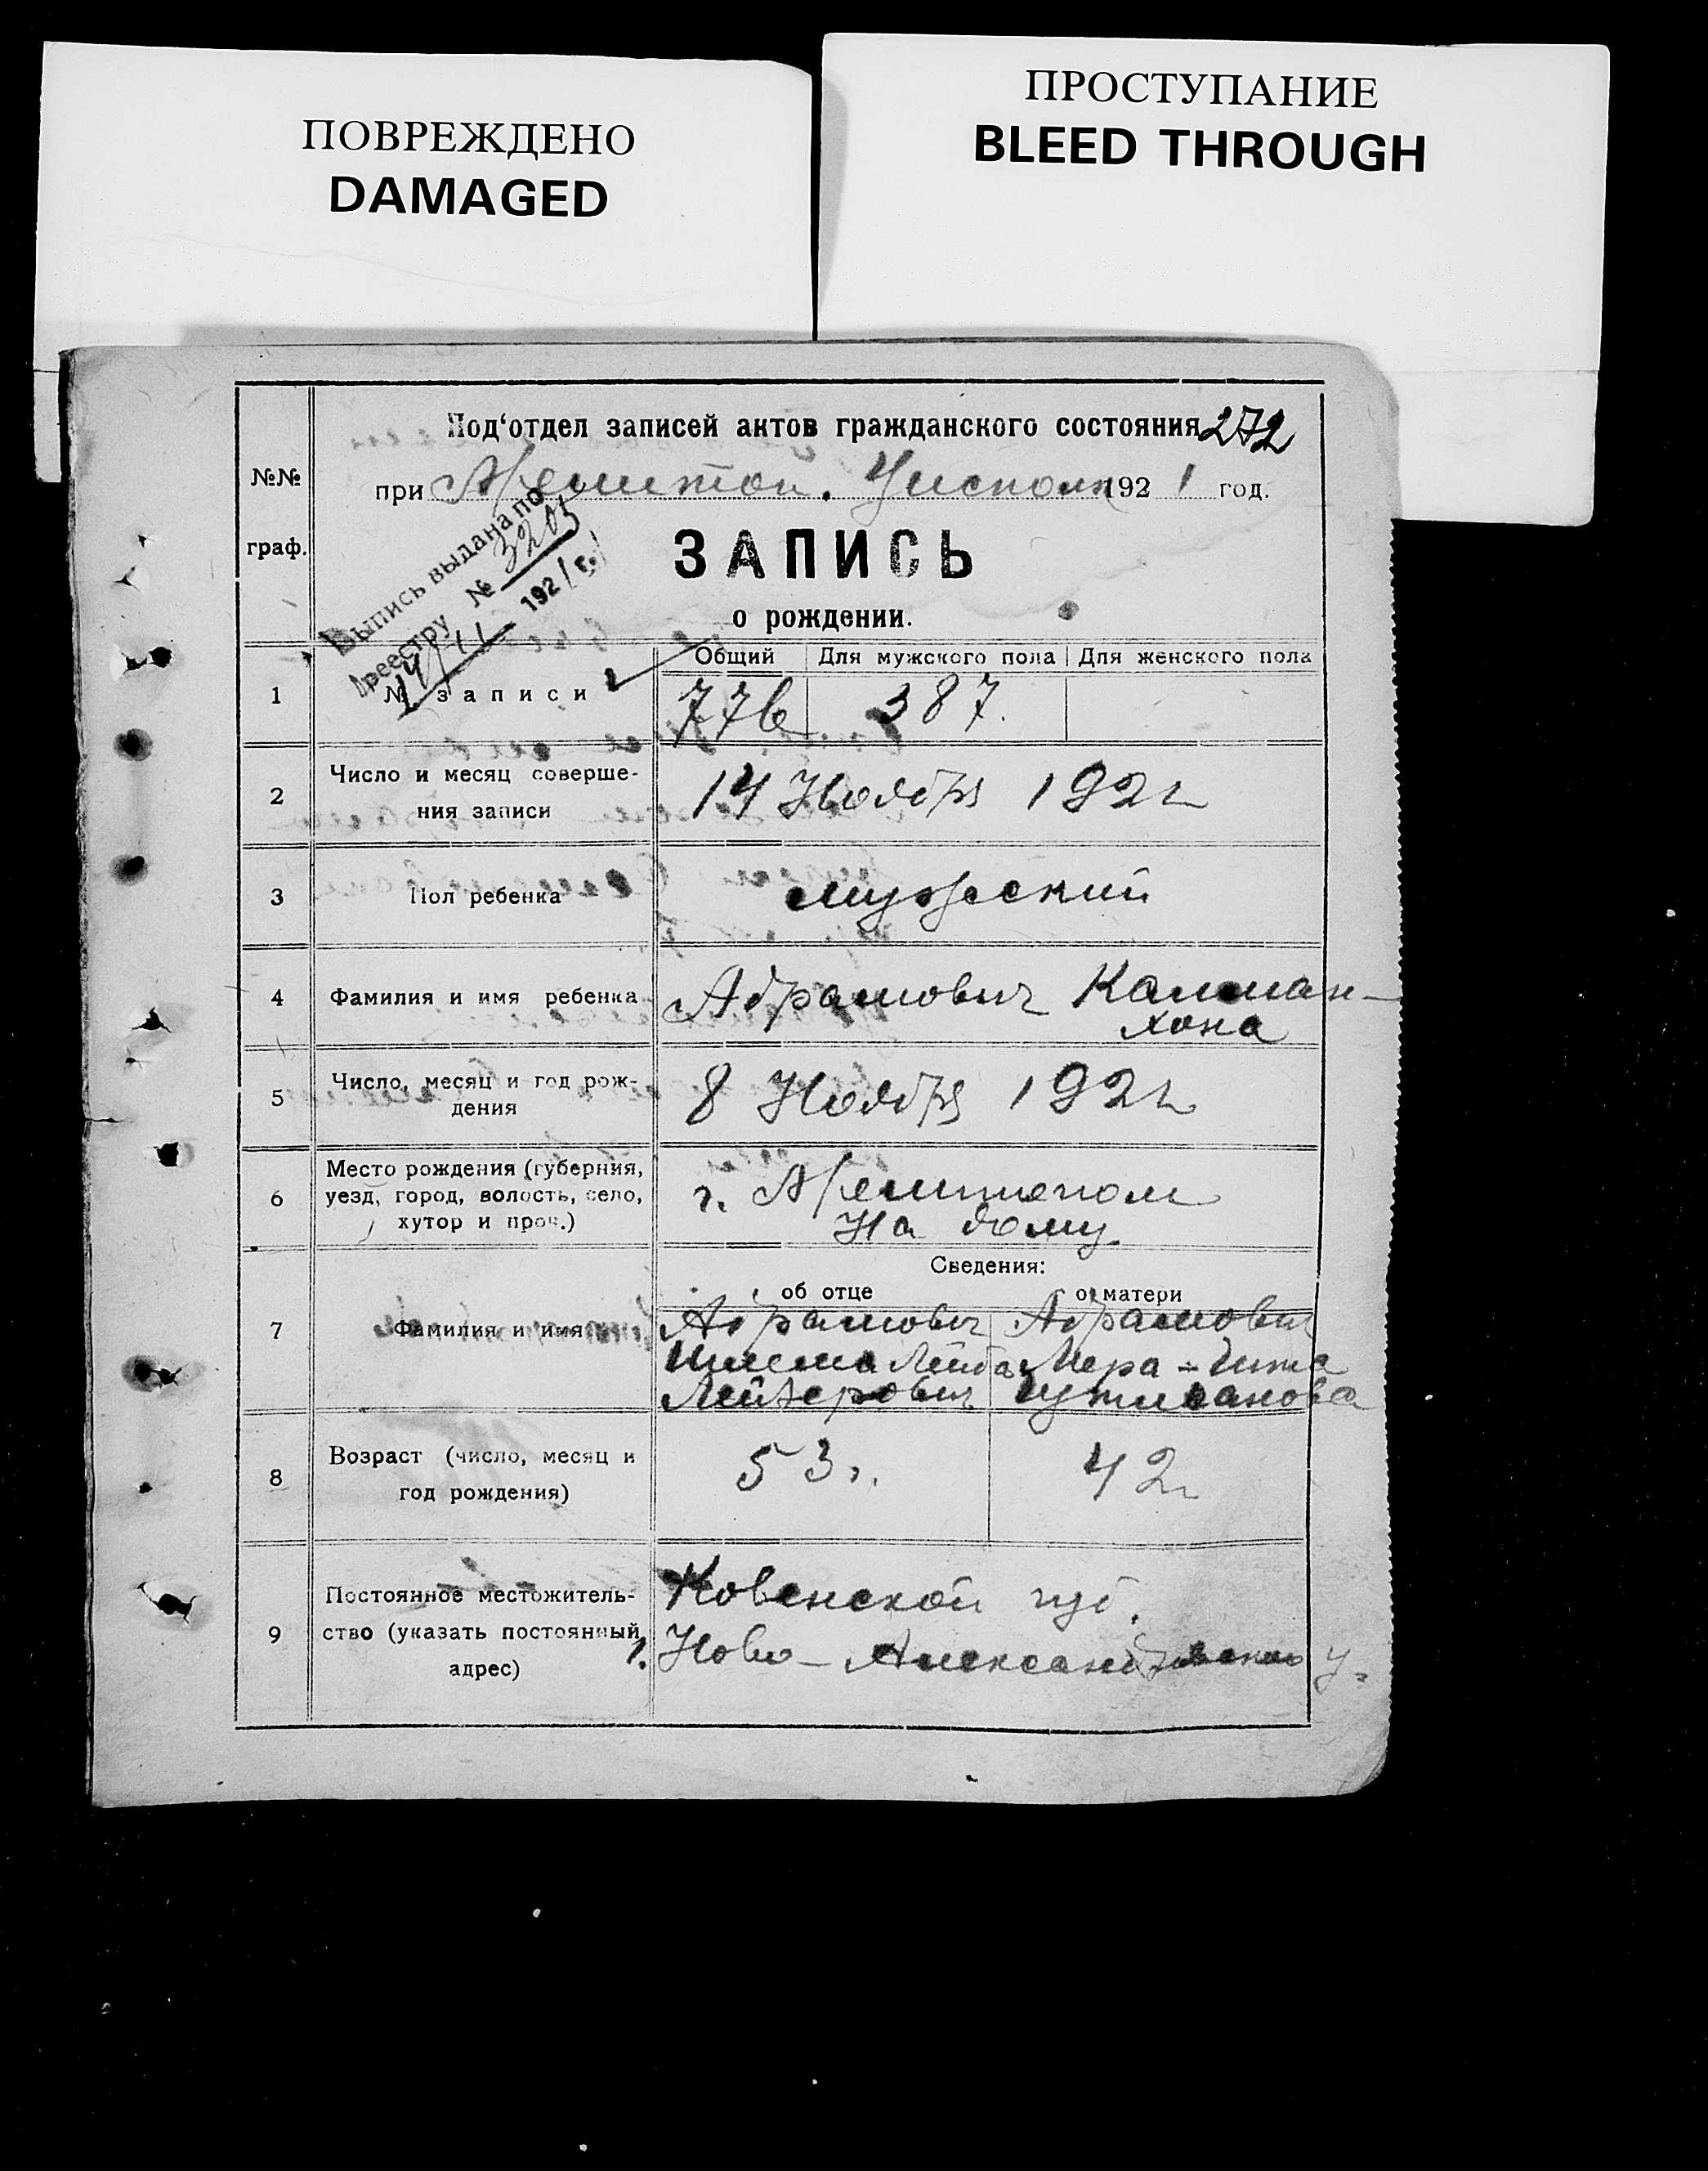 ПОВРЕЖДЕНО
DAMAGED
ПРОСТУПАНИЕ
BLEED THROUGH
Под'отдел записей актов гражданского состояния 272
№№
граф.
при 192 1 год.
ЗАПИСЬ
о рождении.
Выпись выдана по
реестру № 3205
14/11 1921 г.
Общий Для мужского пола Для женского пола
1 № записи 776 387.
2 Число и месяц соверше-
ния записи
14 Ноября 1921
3 Пол ребенка мужеский
4 Фамилия и имя ребенка Абрамович Калман-
хона
5 Число, месяц и год рож-
дения
8 Ноября 1921
6 Место рождения (губерния,
уезд, город, волость, село,
хутор и проч.)
г. Мелитополь
На дому.
Сведения:
об отце о матери
7 Фамилия и имя
Абрамович Абрамович
Шлема Лейба Мера-
Лейзерович
8 Возраст (число, месяц и
год рождения)
53 г. 42
9 Постоянное местожитель-
ство (указать постоянный
адрес)
Ковенской губ.
Ново-Александровского у.